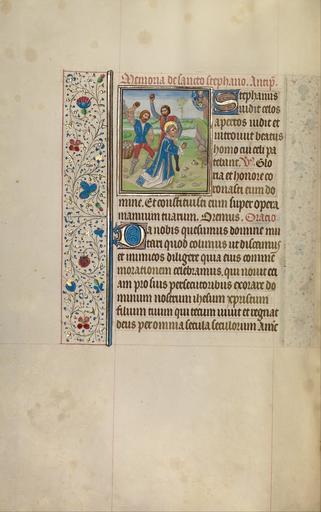 Memoria de sancto stephano. Antip̄.
Stephanus
vidit celos
apertos vidit et
introiuit beatus
homo cui celi pa
tebant. V. Glo
ria et honore co
ronasti eum do
mine. Et constituisti eum super opera
manuum tuarum. Oremus. Oratio
Da nobis quesumus domine imi
tari quod colimus ut discamus
et inimicos diligere quia eius comme
morationem celebramus, qui nouit eci
am pro suis persecutoribus exorare do
minum nostrum ihesum xpristum
filium tuum qui tecum viuit et regnat
deus per omnia secula seculorum Amē